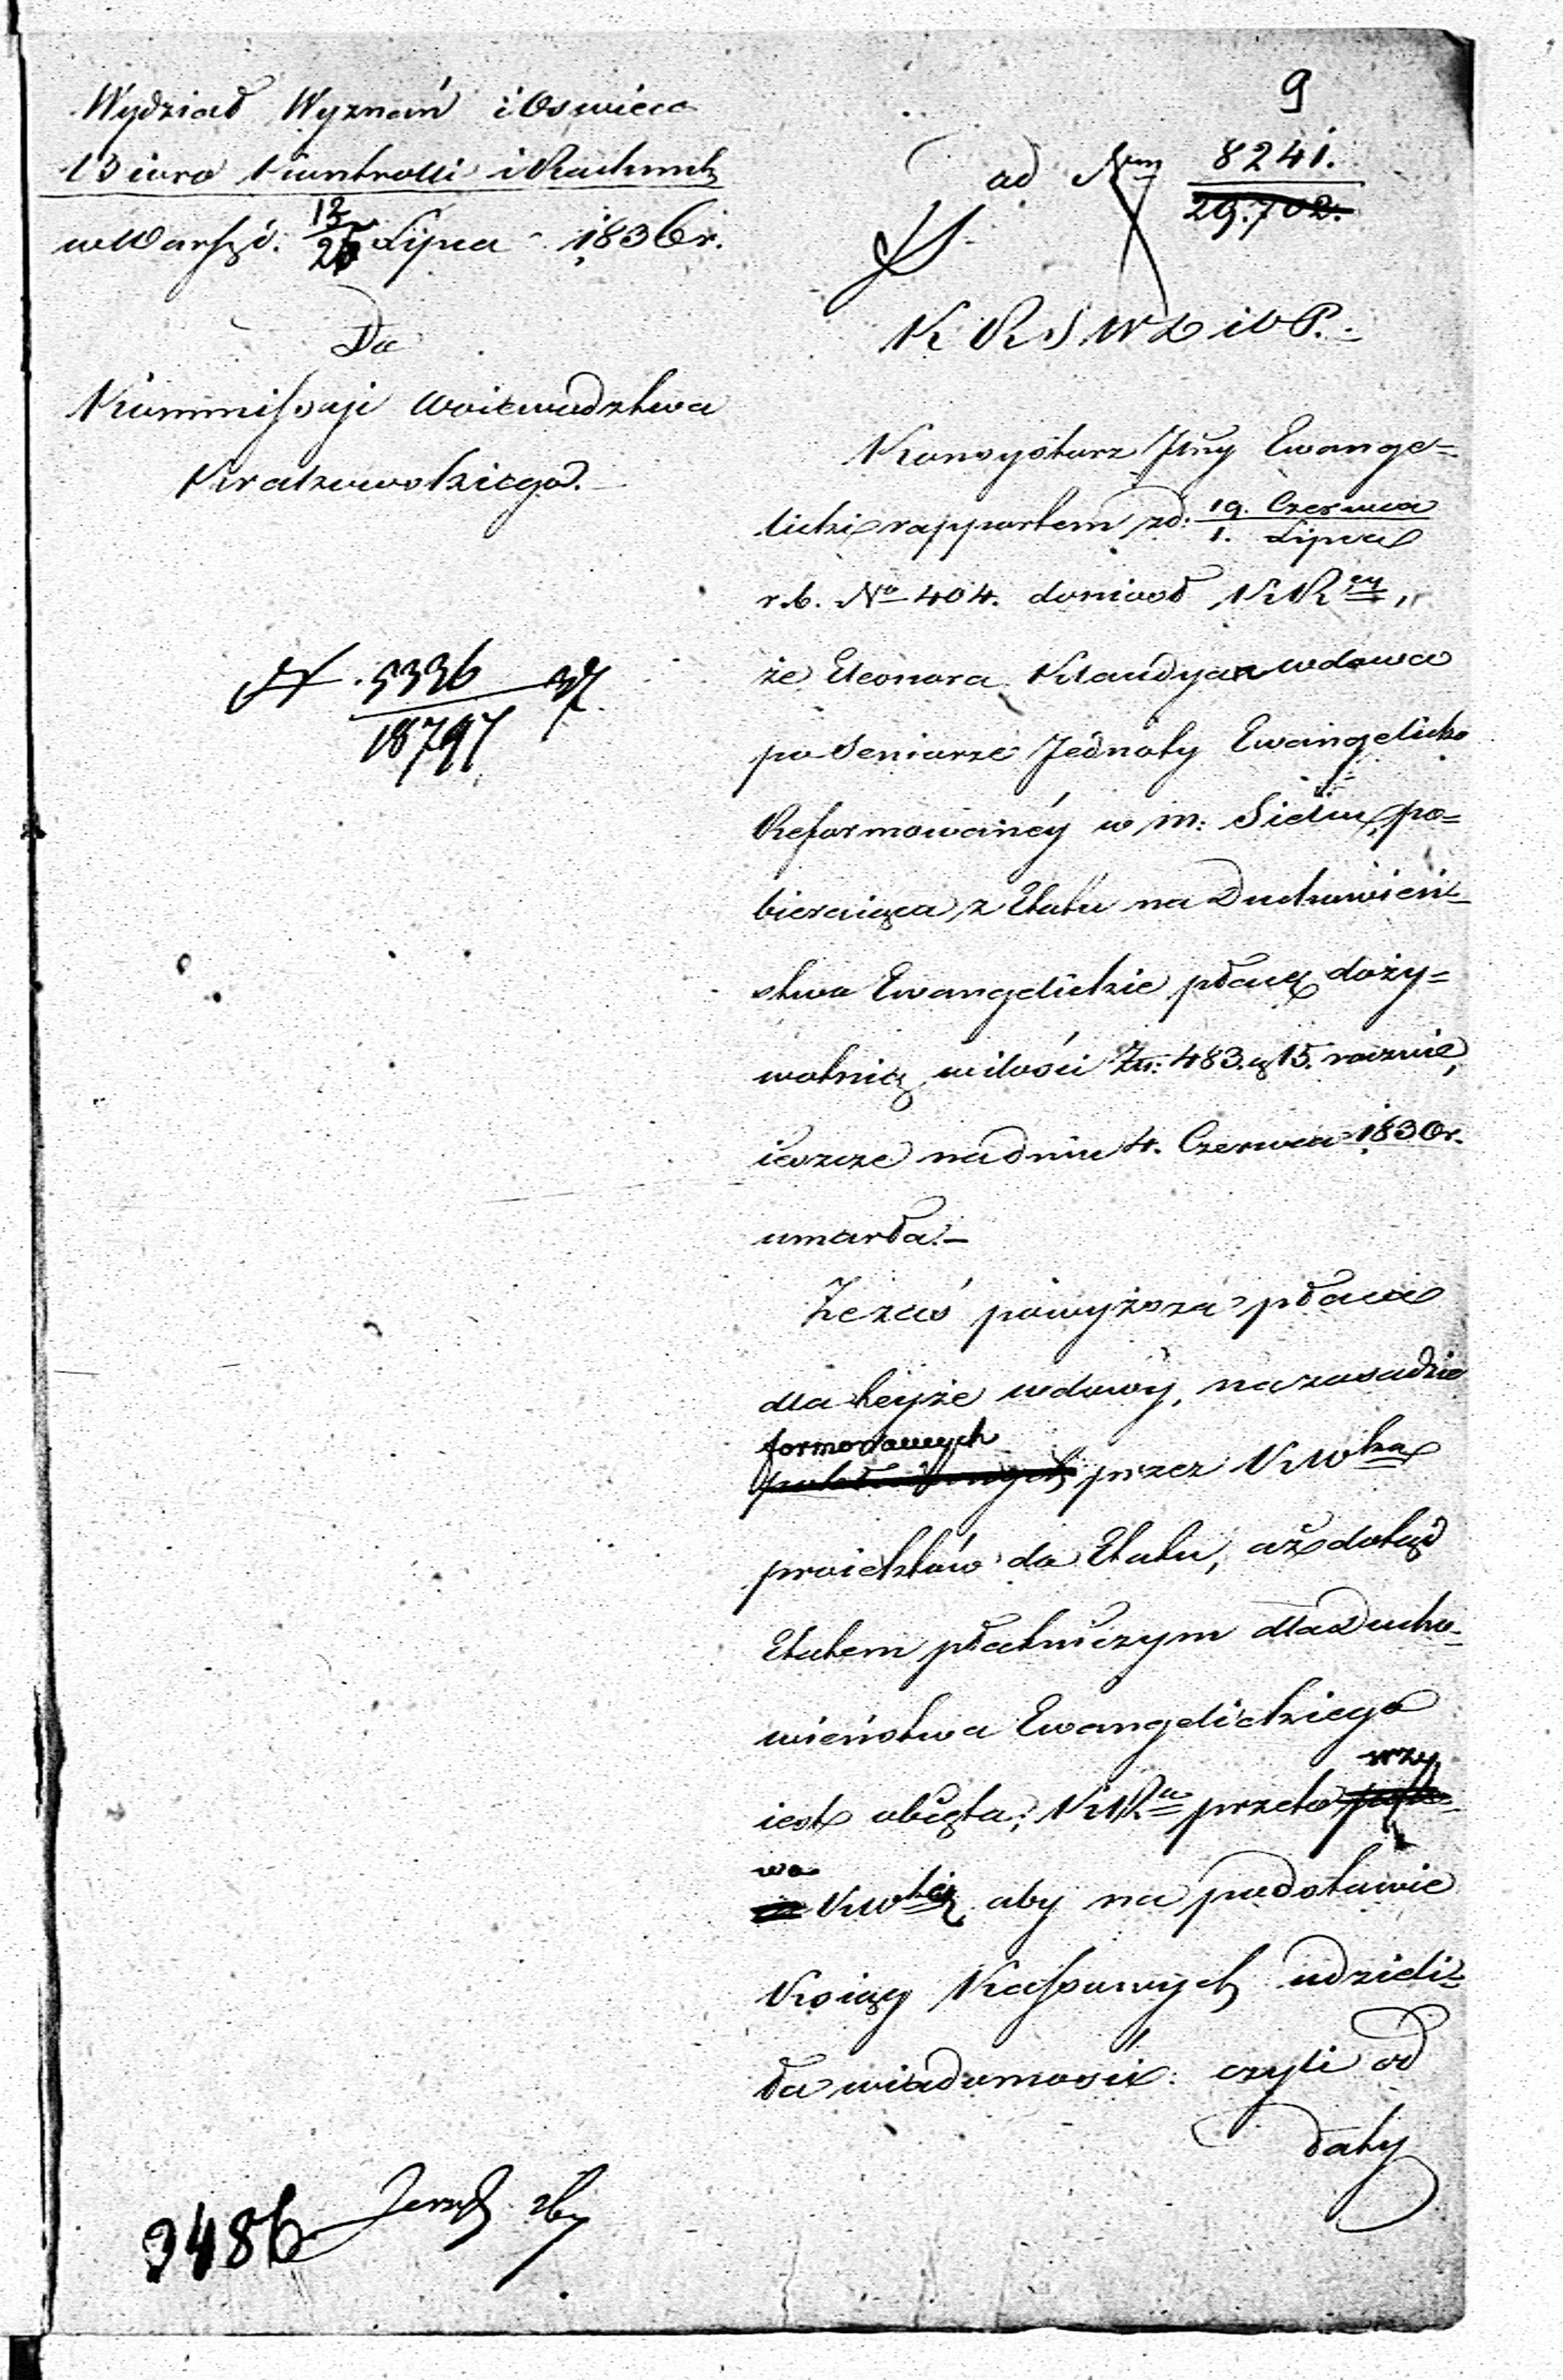 9
Wydział Wyznań i Oswiece
Biuro Kontrolli i Rachunk
w Warsz: 13/25 Lipca 1836 r.
Do
Kommissyi Woiewodztwa
Krakowskiego.
N. 5336
18797
ad Num 8241.
29.702.
K R S W D i O P.
Konsystorz Jlny Ewange=
licki rapportem zd: 19. Czerwca
1. Lipca
r. b. No 404. doniosł KRey,
że Eleonora Klaudyan wdowa
po Seniorze Jednoty Ewangelicko
Reformowanéy w m: Sielcu, po=
bieraiąca z Etatu na Duchowień=
stwo Ewangelickie płacę doży=
wotnią w ilości Zł: 483. g 15. rocznie,
ieszcze na dniu 4. Czerwca 1830 r.
umarła.
Że zaś powyższa płaca
dla teyże wdowy, na zasadzie
formowanych
przez KWka
proiektów do Etatu, aż dotąd
Etatem płatniczym dla Ducho=
wieństwa Ewangelickiego
iest obięta; KRa przeto wzy
wa
KWką aby na podstawie
Ksiąg Kassowych udzieli=
ła wiadomość: czyli od
daty
3486